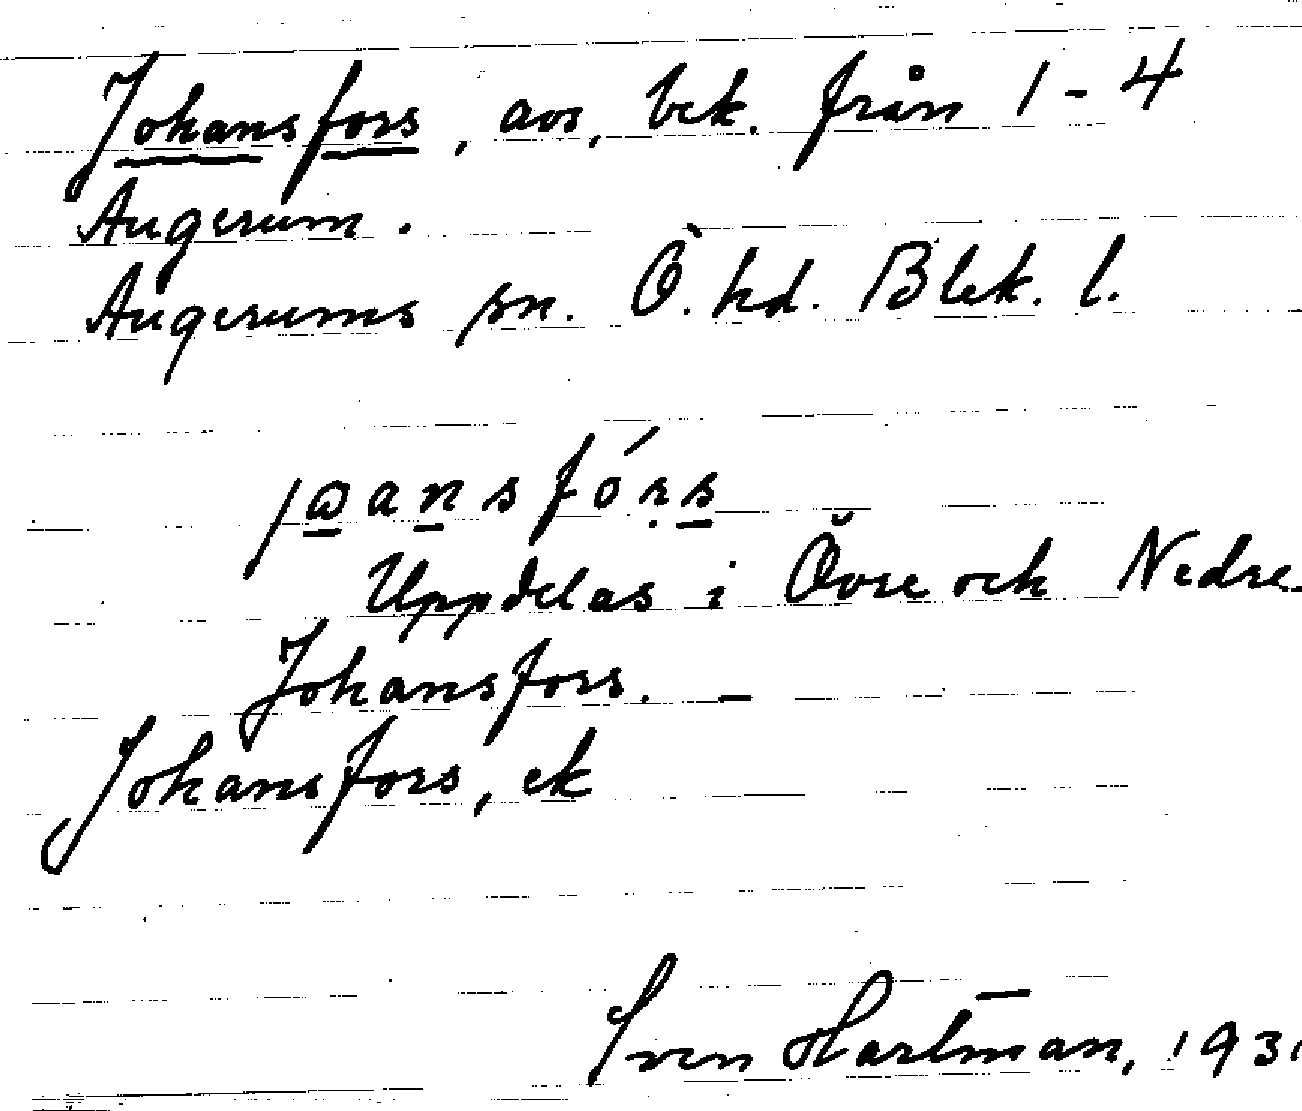 Johansfors, avs, bek. från 1-4
Augerum.
Augerums sn. Ö. hd. Blek. l.
Uppdelas i Övre och Nedre
Johansfors. —
Johansfors, ek
Sven Hartman, 1931